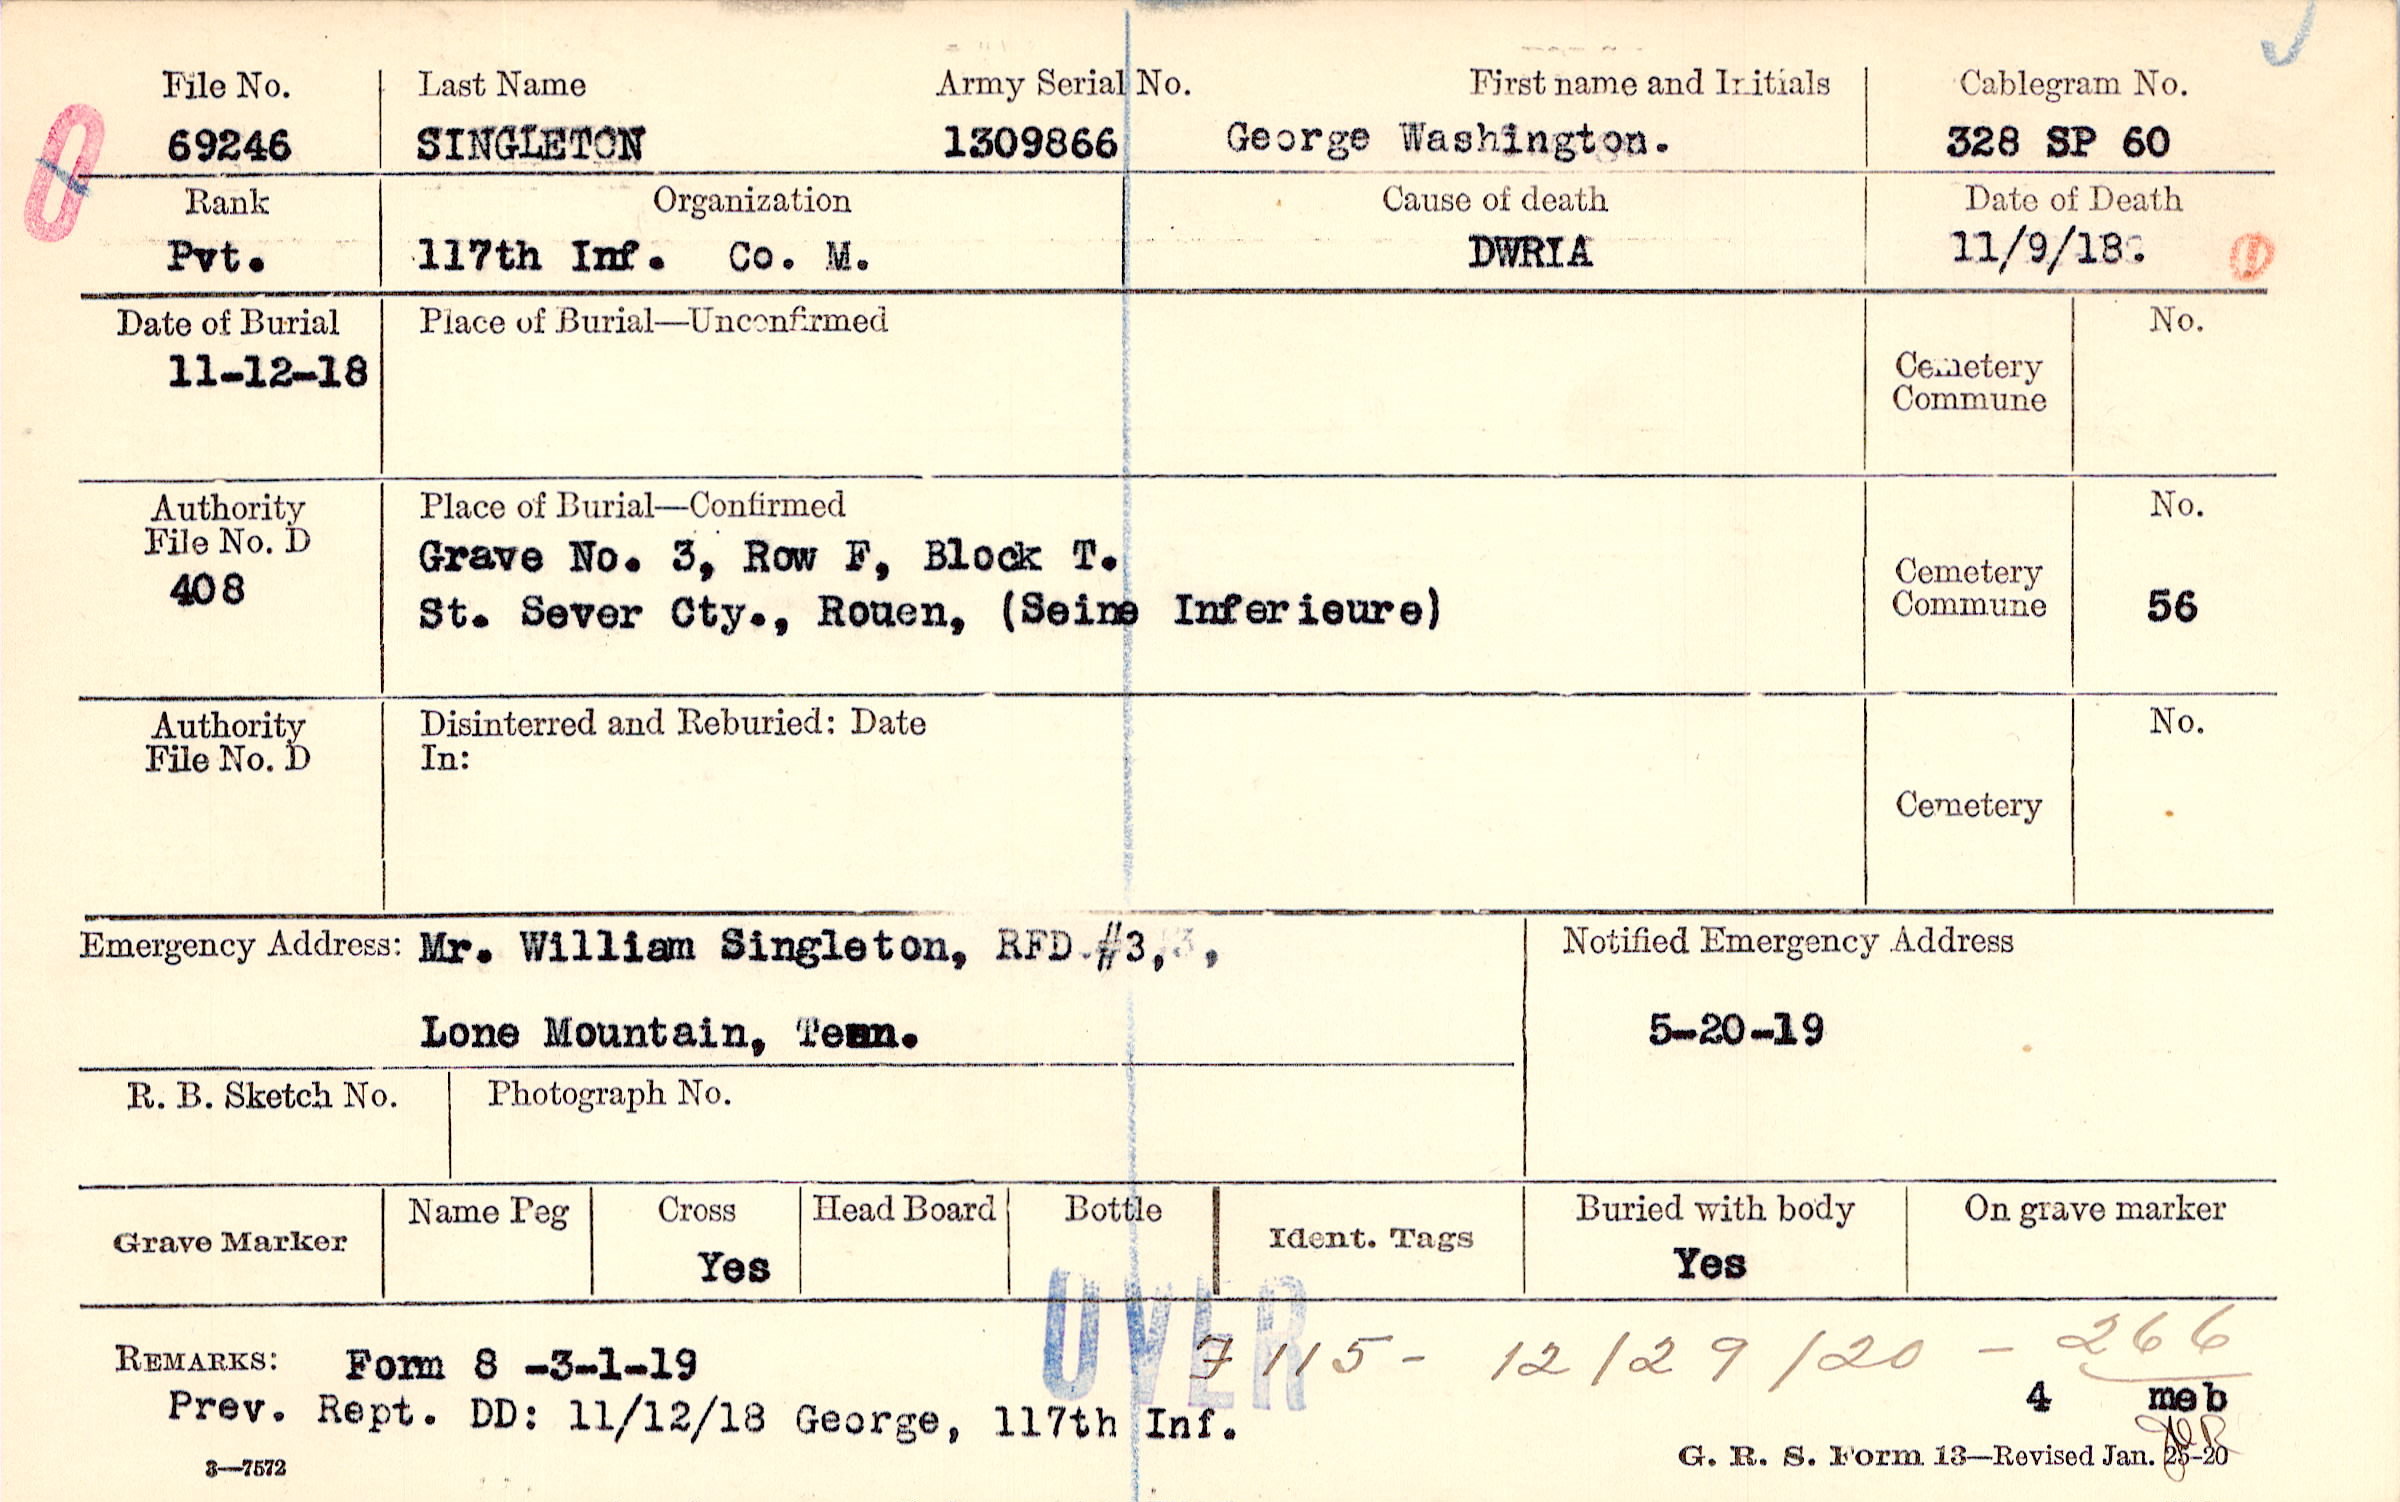 File No. Last Name Army Serial No. First name and Initials Cablegram No.
69246 SINGLETON 1309866 George Washington. 328 SP 60
Rank Organization Cause of death Date of Death
Pvt. 117th Inf. Co. M. DWRIA 11/9/18.
Date of Burial Place of Burial—Unconfirmed No.
11-12-18
Cemetery
Commune
Authority Place of Burial—Confirmed No.
File No. D
408
Grave No. 3, Row F, Block T.
St. Sever Cty., Rouen, (Seine Inferieure)
Cemetery
Commune 56
Authority Disinterred and Reburied: Date No.
File No. D In:
Cemetery
Emergency Address: Mr. William Singleton, RFD #3, Notified Emergency Address
Lone Mountain, Tenn. 5-20-19
R. B. Sketch No. Photograph No.
Grave Marker Name Peg Cross Head Board Bottle Ident. Tags Buried with body On grave marker
Yes Yes
OVER
7115- 12/29/20 - 266
REMARKS: Form 8 -3-1-19
4 meb
Prev. Rept. DD: 11/12/18 George, 117th Inf.
3—7572 G. R. S. Form 13—Revised Jan. 25-20